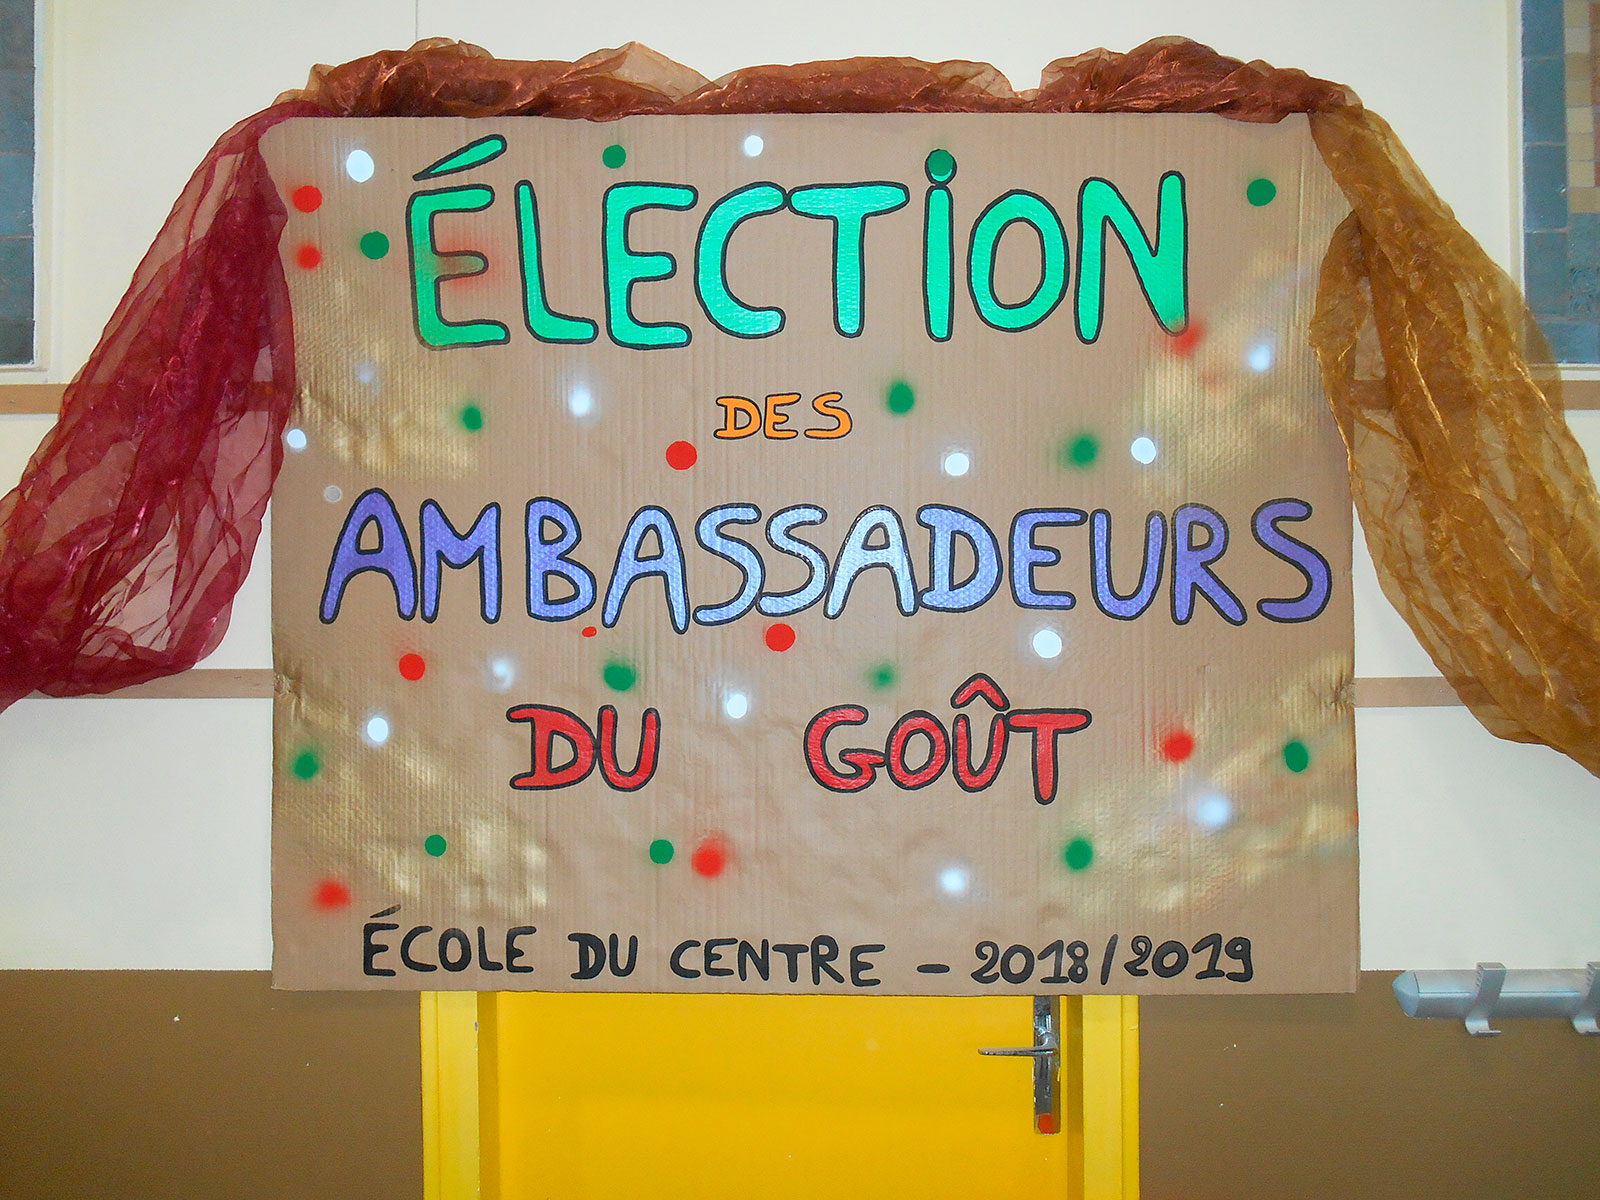 ÉLECTION
DES
AMBASSADEURS
DU GOÛT
ÉCOLE DU CENTRE - 2018/2019